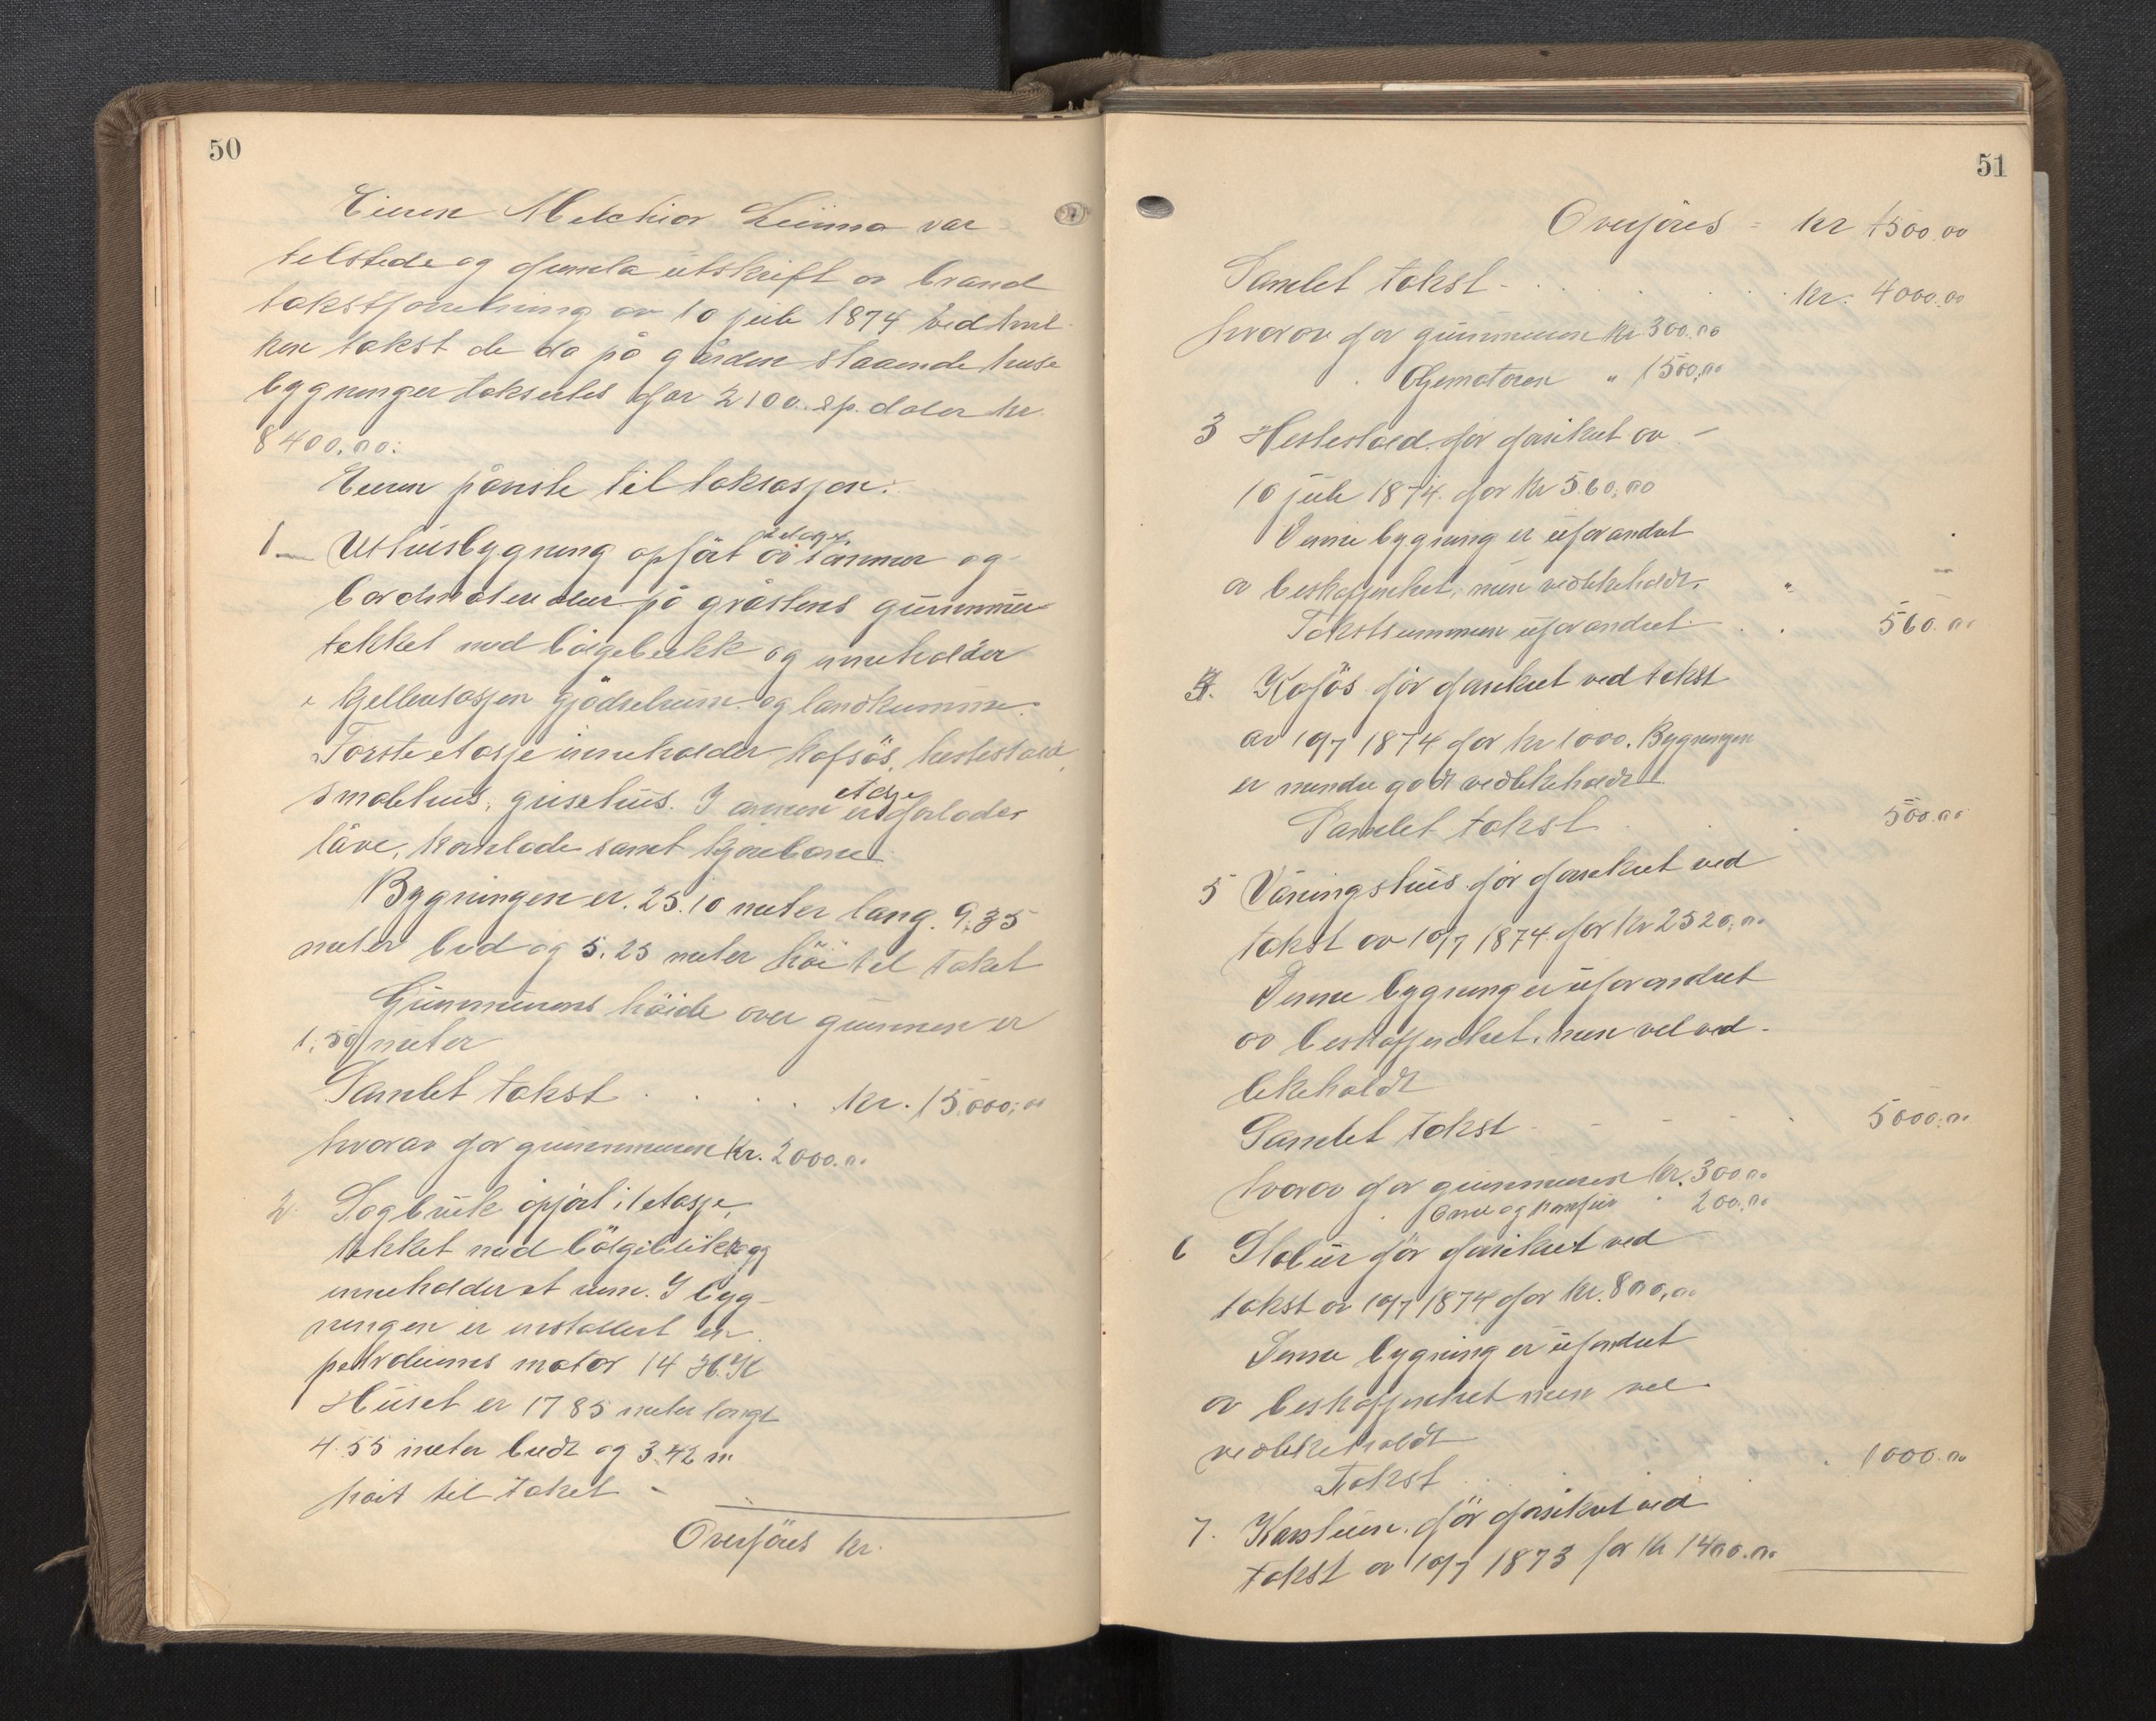 50
Eieren Melchior Leinna var
tilstede og fremla utskrift av brand
takstforretning av 10 juli 1874 ved hvil
ken takst de da på gården staaende huse
bygninger taksertes for 2100. sp. daler kr.
8400,00.
Eieren påviste til taksasjon:
1 Uthusbygning opført av tømmer og
2 etager
bordkledt på gråstens grunnmur
tekket med bølgeblekk og inneholder
i kjelleretasjen gjødselrum og landkumme.
Første etasje inneholder kufjøs, hestestald,
smalehus, grisehus. I annen etasje er forlader
låve, kornlade samt kjørebane
Bygningen er 25.10 meter lang. 9.35
meter bred og 5.25 meter høi til taket
Grunnmurens høide over grunnen er
1,50 meter
Samlet takst . . . . kr. 15.000,00
hvorav for grunnmuren kr. 2000.00
2. Sagbruk opført i 1 etasje,
tekket med bølgeblikk og
inneholder et rum. I byg-
ningen er installert en
petroleums motor 14 H.K
Huset er 17 85 meter langt
4.55 meter bredt og 3.42 m
høit til taket -
Overføres kr.
51
Overføres = kr 1500.00
Samlet takst - . . . . kr. 4000.00
hvorav for grunnmuren kr 300.00
Oljemotoren " 1500,00
3 Hestestald før forsikret av -
10 juli 1874 for kr 560,00
Denne bygning er uforandret
av beskaffenhet, men vedlikeholdt. "
Takstsummen uforandret . . 560.00
4. Kofjøs før forsikret ved takst
av 10/7 1874 for kr 1000. Bygningen
er mindre godt vedlikeholdt
Samlet takst . . . 500.00
5 Våningshus før forsikret ved
takst av 10/7 1874 for kr 2520,00
Denne bygning er uforandret
av beskaffenhet, men vel ved-
likeholdt
Samlet takst - - - . 5000,00
hvorav for grunnmuren kr. 300.00
" 200,00
6 Stabur før forsikret ved
takst av 10/7 1874 for kr. 800,00
Denne bygning er uforandret
av beskaffenhet men vel
vedlikeholdt
Takst . . . . 1000.00
7. Karstuen før forsikret ved
takst av 10/7 1873 for kr 1400.00